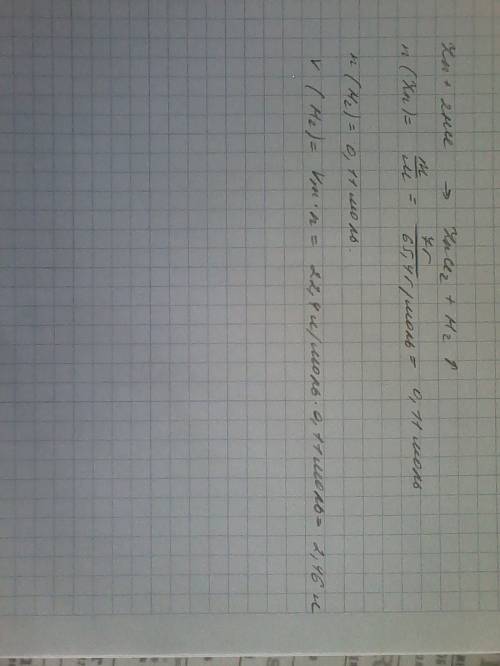 Zn + 2HCl → ZnCl₂ + H₂ ↑
n (Zn) = m/M = 7г/65,4г/моль = 0,11 моль
n (H₂) = 0,11 моль.
V (H₂) = Vm · n = 22,4 л/моль · 0,11 моль = 2,46 л